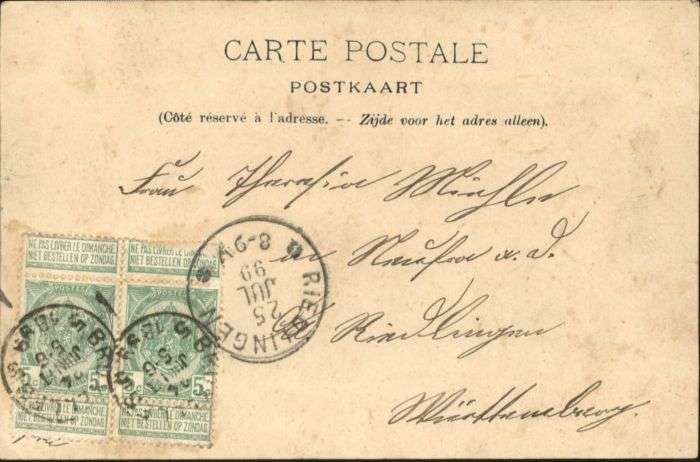 CARTE POSTALE
POSTKAART
(Côté réservé à l'adresse. -- Zijde voor het adres alleen).
Frau Theresia Mühle
in Neufra a. d.
Riedlingen
Württemberg.
RIEDLINGEN
25
JUL
99
A6-8
NE PAS LIVRER LE DIMANCHE
NIET BESTELLEN OP ZONDAG
NE PAS LIVRER LE DIMANCHE
NIET BESTELLEN OP ZONDAG
POSTES
5c
5c
NE PAS LIVRER LE DIMANCHE
NIET BESTELLEN OP ZONDAG
NE PAS LIVRER LE DIMANCHE
NIET BESTELLEN OP ZONDAG